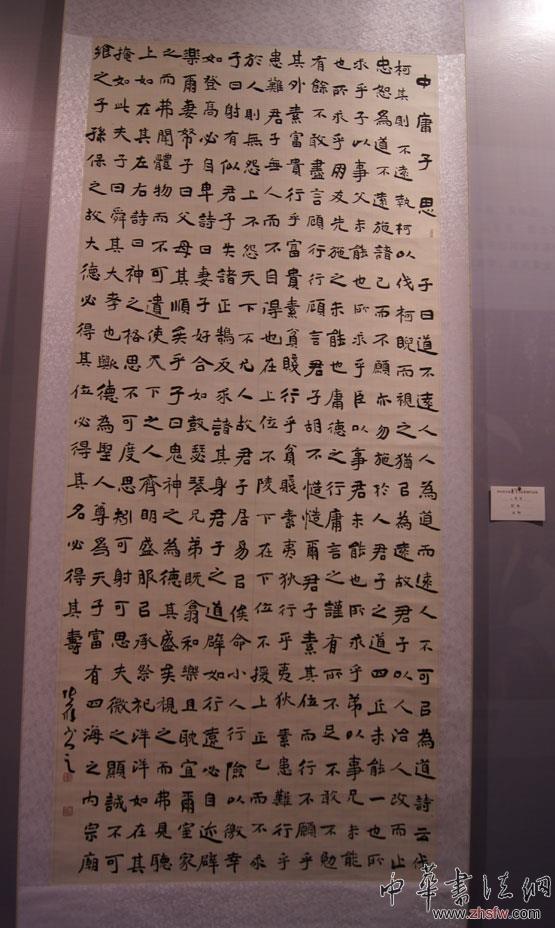 中庸子思 子曰道不遠人人為道而遠人不可㠯為道詩云伐
柯其則不遠執柯以伐柯睨而視之猶㠯為遠故君子以人治人改而止
忠恕為道不遠施諸己而不願亦勿施於人君子之道四丘未能一也所
求乎子以事父未能也所求乎臣以事君未能也所求乎弟以事兄未能
也所求乎朋友先施之未能也庸德之行庸言之謹有所不足不敢不勉
有餘不敢盡言顧行行顧言君子胡不慥慥爾君子素其位而行不願乎
其外素富貴行乎富貴素貧賤行乎貧賤素夷狄行乎夷狄素患難行乎
患難君子無入而不自得也在上位不陵下在下位不援上正己而不求
於人則無怨上不怨天下不尤人故君子居易㠯俟命小人行險以徼幸
子曰射有似君子失諸正鵠反求諸其身君子之道辟如行遠必自邇辟
如登高必自卑詩曰妻子好合如鼓瑟琴兄弟既翕和樂且耽宜爾室家
樂爾妻帑子曰父母其順矣乎子曰鬼神之為德其盛矣視之而弗見聽
之而弗聞體物而不可遺使天下之人齊明盛服㠯承祭祀洋洋如在其
上如在其左右詩曰神之格思不可度思矧可射可思夫微之顯誠不可
掩如此夫子曰舜其大孝也歟德為聖人尊為天子富有四海之內宗廟
饗之子孫保之故大德必得其位必得其名必得其壽
中華書法網
www.zhsfw.com